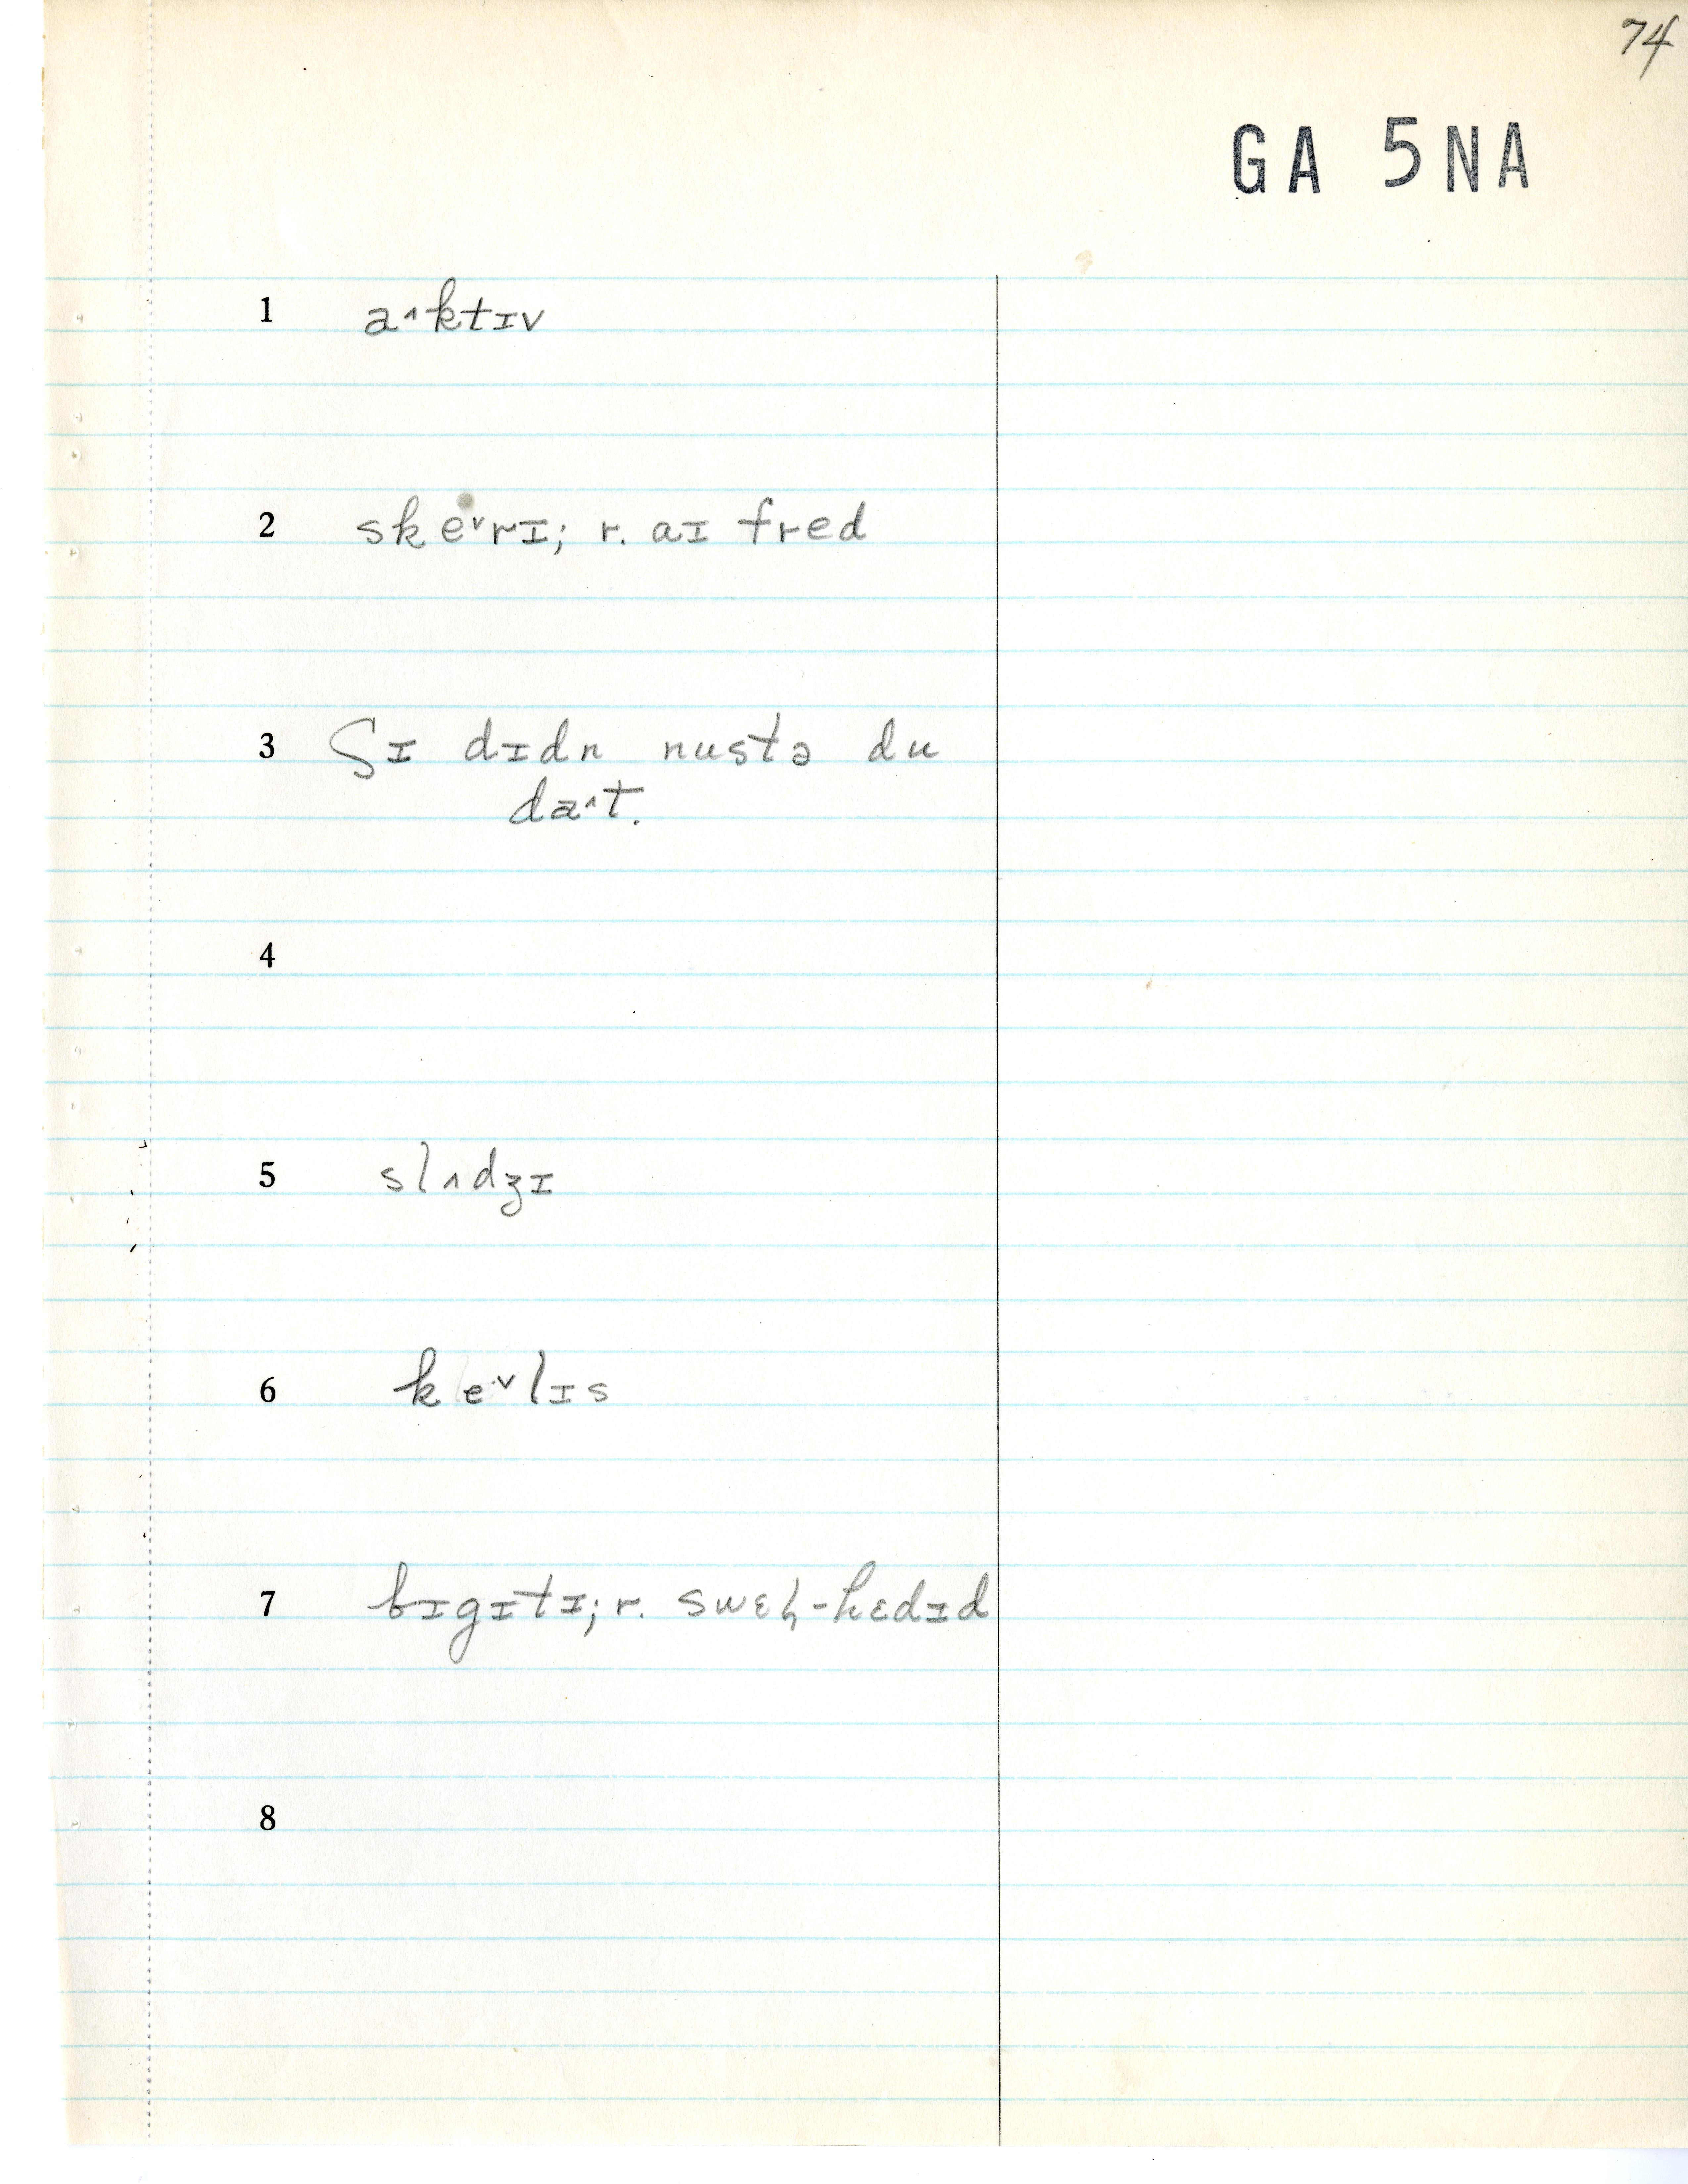 74
GA 5NA
1 a˄ktɪv
2 ske˅rɪ; r. aɪ fred
3 ʃɪ dɪdn nustə du
da˄t.
4
5 slʌdʒɪ
6 ke˅lɪs
7 bɪgɪtɪ; r. swɛl-hɛdɪd
8